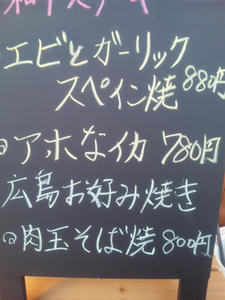 和牛ステーキ
エビとガーリック
スペイン焼 880円
アホなイカ 780円
広島お好み焼き
肉玉そば焼 800円